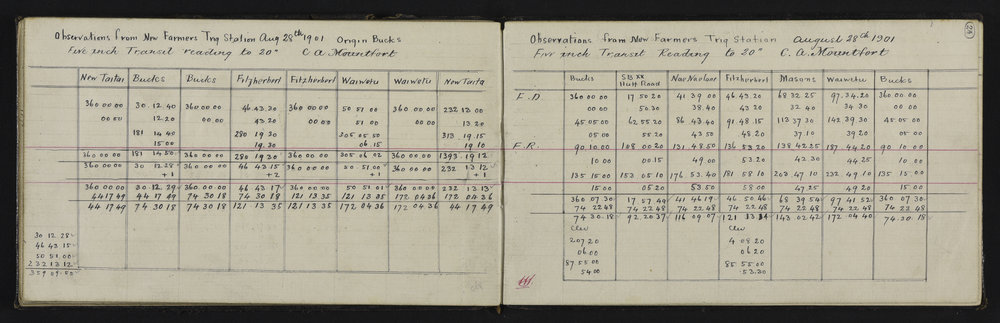 Observations from New Farmers Trig Station Aug 28th 1901 Origin Bucks
Five inch Transit reading to 20" C. A. Mountfort
New Taitai Bucks Bucks Fitzherbert Fitzherbert Waiwetu Waiwetu New Taita
360 00 00 30. 12. 40 360 00 00 46. 43. 20 360 00 00 50 51 00 360 00 00 232 13 00
00 50 12. 20 00. 00 43 20 00. 00 51 00 00. 00 13. 20
181 14 40 280 19 30 305 05 50 313. 19. 15
15 00 19. 30 06. 15 19 10
360 00 00 181 14 50 360 00 00 280 19 30 360 00 00 305 06 02 360 00 00 1393. 19. 12
360 00 00 30 12. 28 360 00 00 46 43 15 360 00 00 50 51 00 360 00 00 232 13 12
+1 +2 +1 +1
360 00 00 30. 12. 29 360 00 00 46 43. 17 360 00 00 50 51 01 360 00 00 232 13. 13
44 17 49 44 17 49 74 30 18 74 30 18 121 13 35 121 13 35 172 04 36 172 04 36
44 17 49 74 30 18 74 30 18 121 13 35 121 13 35 172 04 36 172 04 36 44 17 49
30 12 28
46 43 15
50 51 00
232 13 12
359 59. 55
Observations from New Farmers Trig Station August 28th 1901
Five inch Transit Reading to 20" C. A. Mountfort
Bucks SB XX Hutt Road Nae Nae Fitzherbert Masons Waiwetu Bucks
F. D. 360 00 00 17 50 20 41 39 00 46. 43. 20 68 32 25 97. 34. 20 360 00 00
00 00 50. 30 38. 40 43. 20 32 40 34 30 00 00
45 05 00 62. 55. 20 86 43. 40 91. 48. 15 113 37 30 142 39. 30 45 05 00
05 00 55 20 43. 50 48. 20 37 10 39 20 05 00
F. R. 90. 10. 00 108 00 20 131. 48. 50 136 53. 20 138 42 25 187 44. 20 90 10 00
10 00 00 15 49 00 53. 20 42 30 44 25 10 00
135 15 00 153 05 10 176 53. 40 181 58 10 203 47 10 232 49 10 135 15 00
15 00 05 20 53. 50 58 00 47 25 49 20 15 00
360 07 30 17 57 49 41 46 19 46 50. 46 68 39 54 97 41 52 360 07 30
74 22 48 74 22 48 74 22 48 74 22 48 74 22 48 74 22 48 74 22 48
74 30 18 92. 20 37 116 09 07 121 13 34 143 02 42 172 04 40 74 30. 18
207 20 4 08 20
06. 00 06 20
87 55 00 85 55 00
54. 00 53. 30